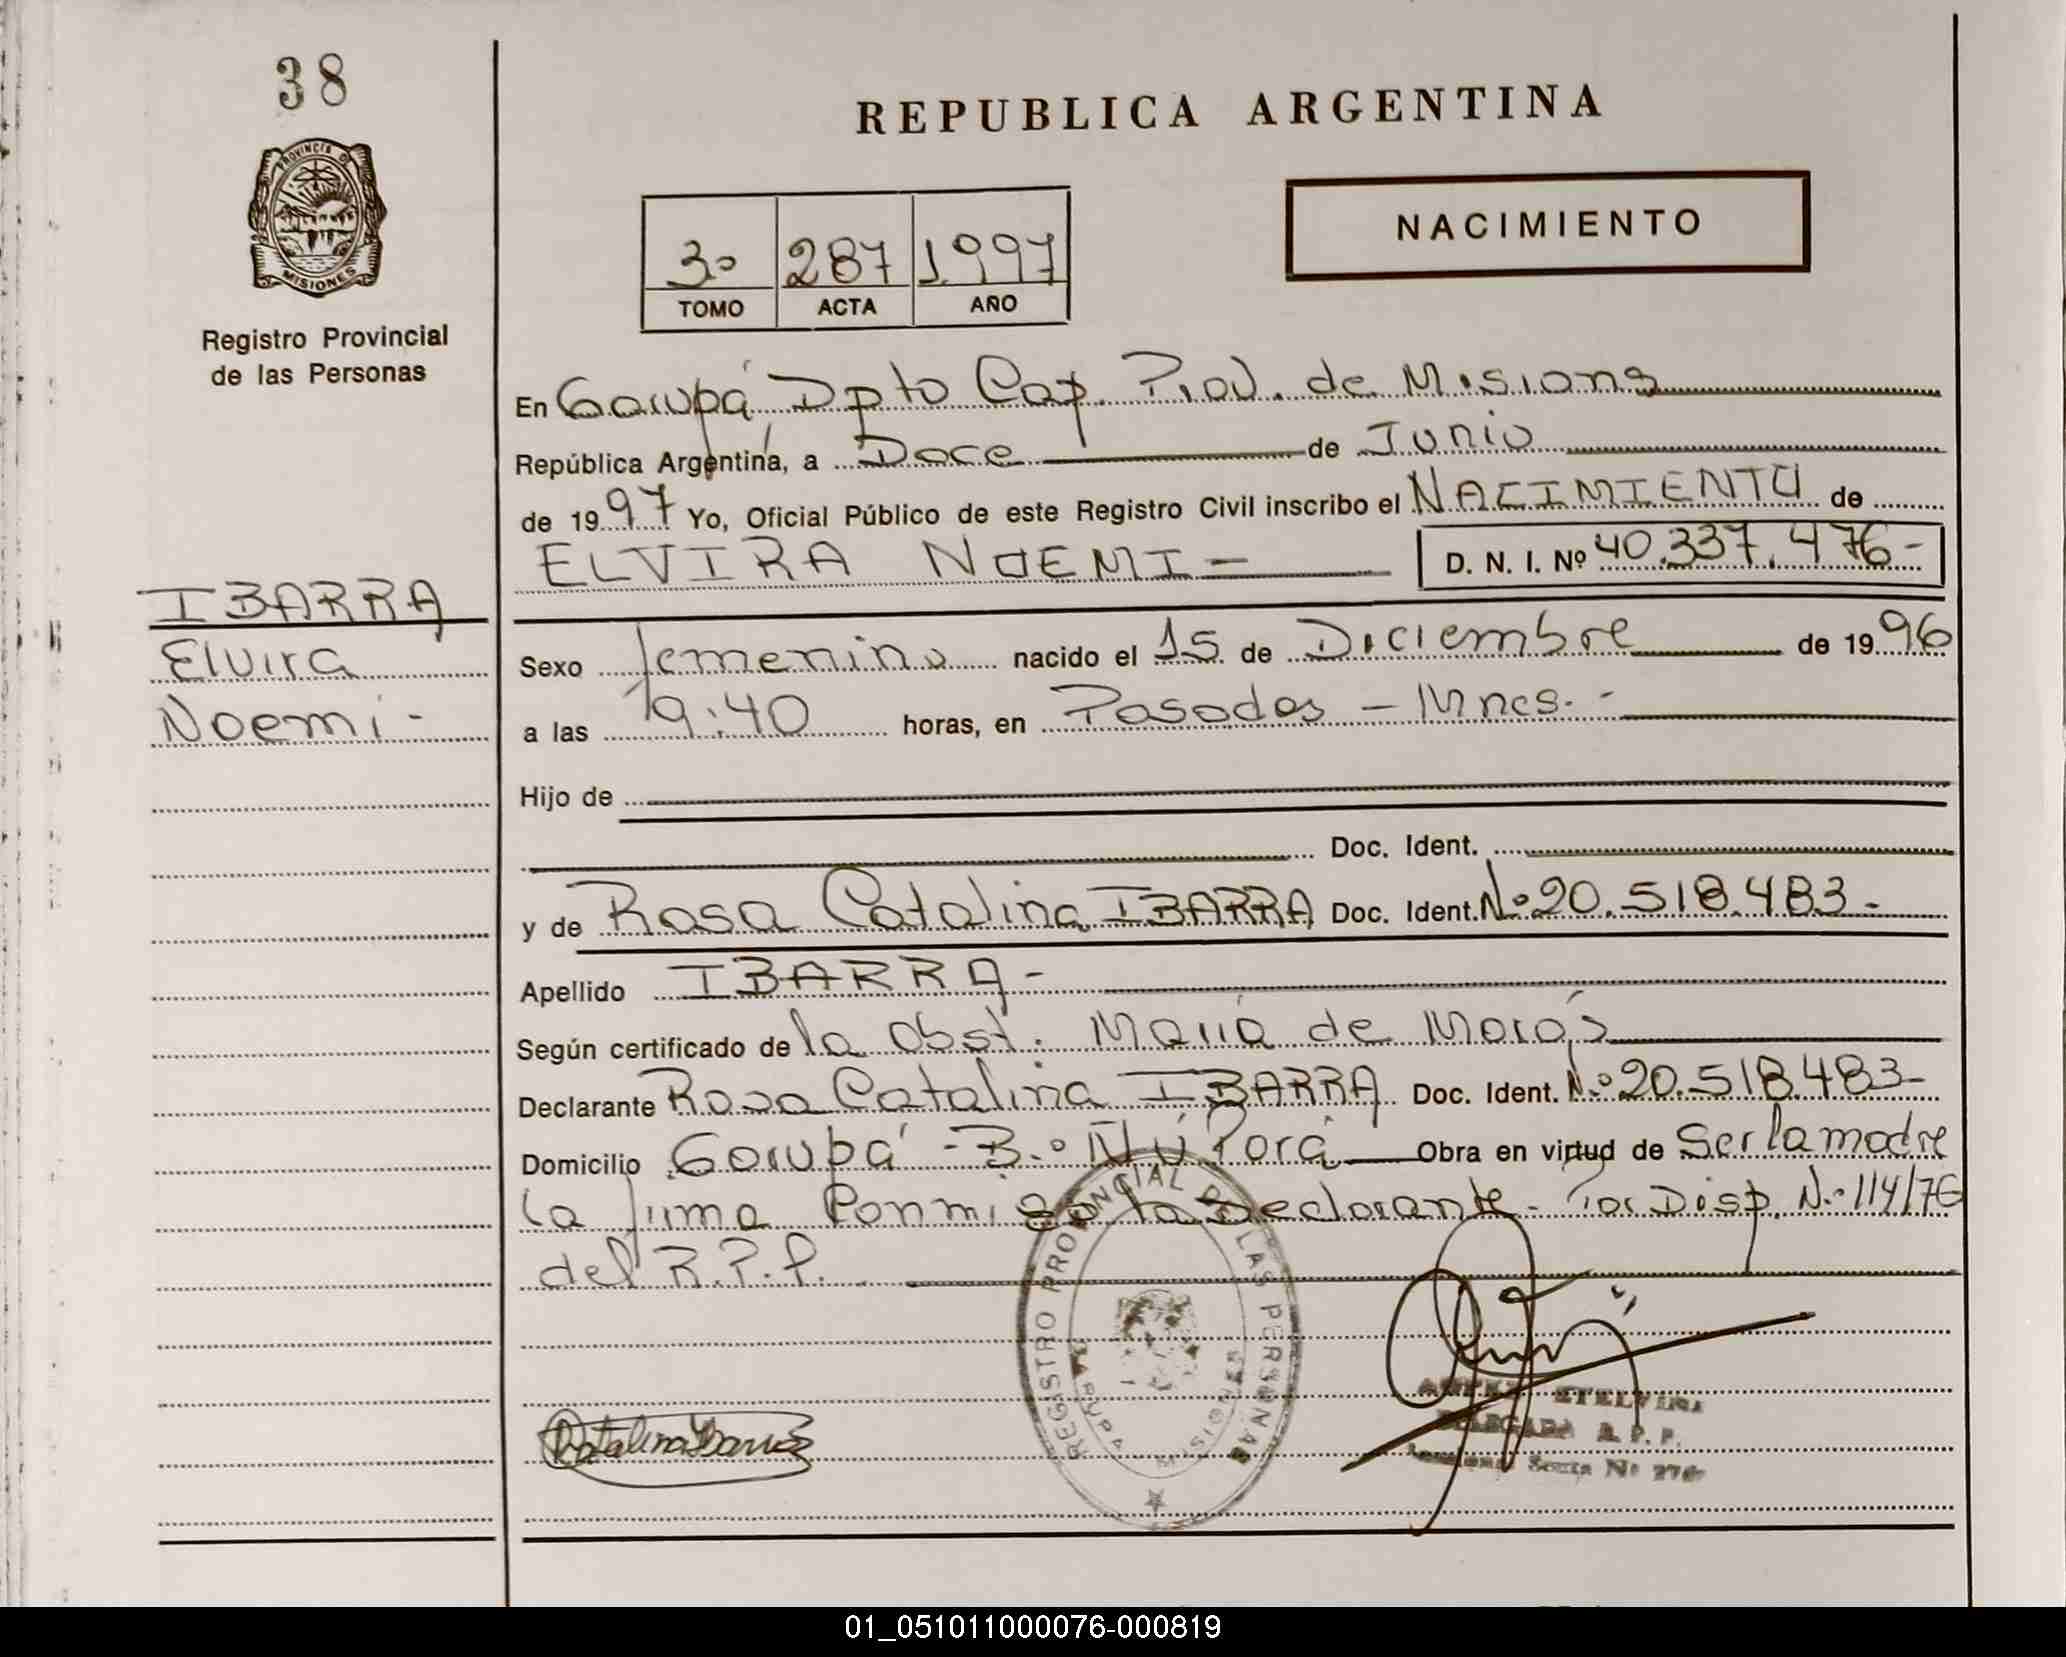 38
PROVINCIA DE
MISIONES
Registro Provincial
de las Personas
REPUBLICA ARGENTINA
NACIMIENTO
3º 287 1997
TOMO ACTA AÑO
En Garupá, Dpto Cap. Prov. de Misions
República Argentina, a Doce de Junio
de 1997 Yo, Oficial Público de este Registro Civil inscribo el NACIMIENTO de
ELVIRA NOEMI - D. N. I. Nº 40.337.476-
IBARRA
Elvira
Noemi -
Sexo femenino nacido el 15 de Diciembre de 1996
a las 19:40 horas, en Posadas - Mnes. -
Hijo de
Doc. Ident.
y de Rosa Catalina IBARRA Doc. Ident. Nº 20.518.483.-
Apellido IBARRA -
Según certificado de la Obst. María de
Declarante Rosa Catalina IBARRA Doc. Ident. Nº 20.518.483-
Domicilio Garupá - Bº Ñú Porá Obra en virtud de Ser la madre
La firma Conmigo la Declarante. Por Disp. Nº 114/76
del R.P.P.
REGISTRO PROVINCIAL DE LAS PERSONAS
GARUPA
MISIONES
Catalina Ibarra
ETELVINA
DELEGADA R. P. P.